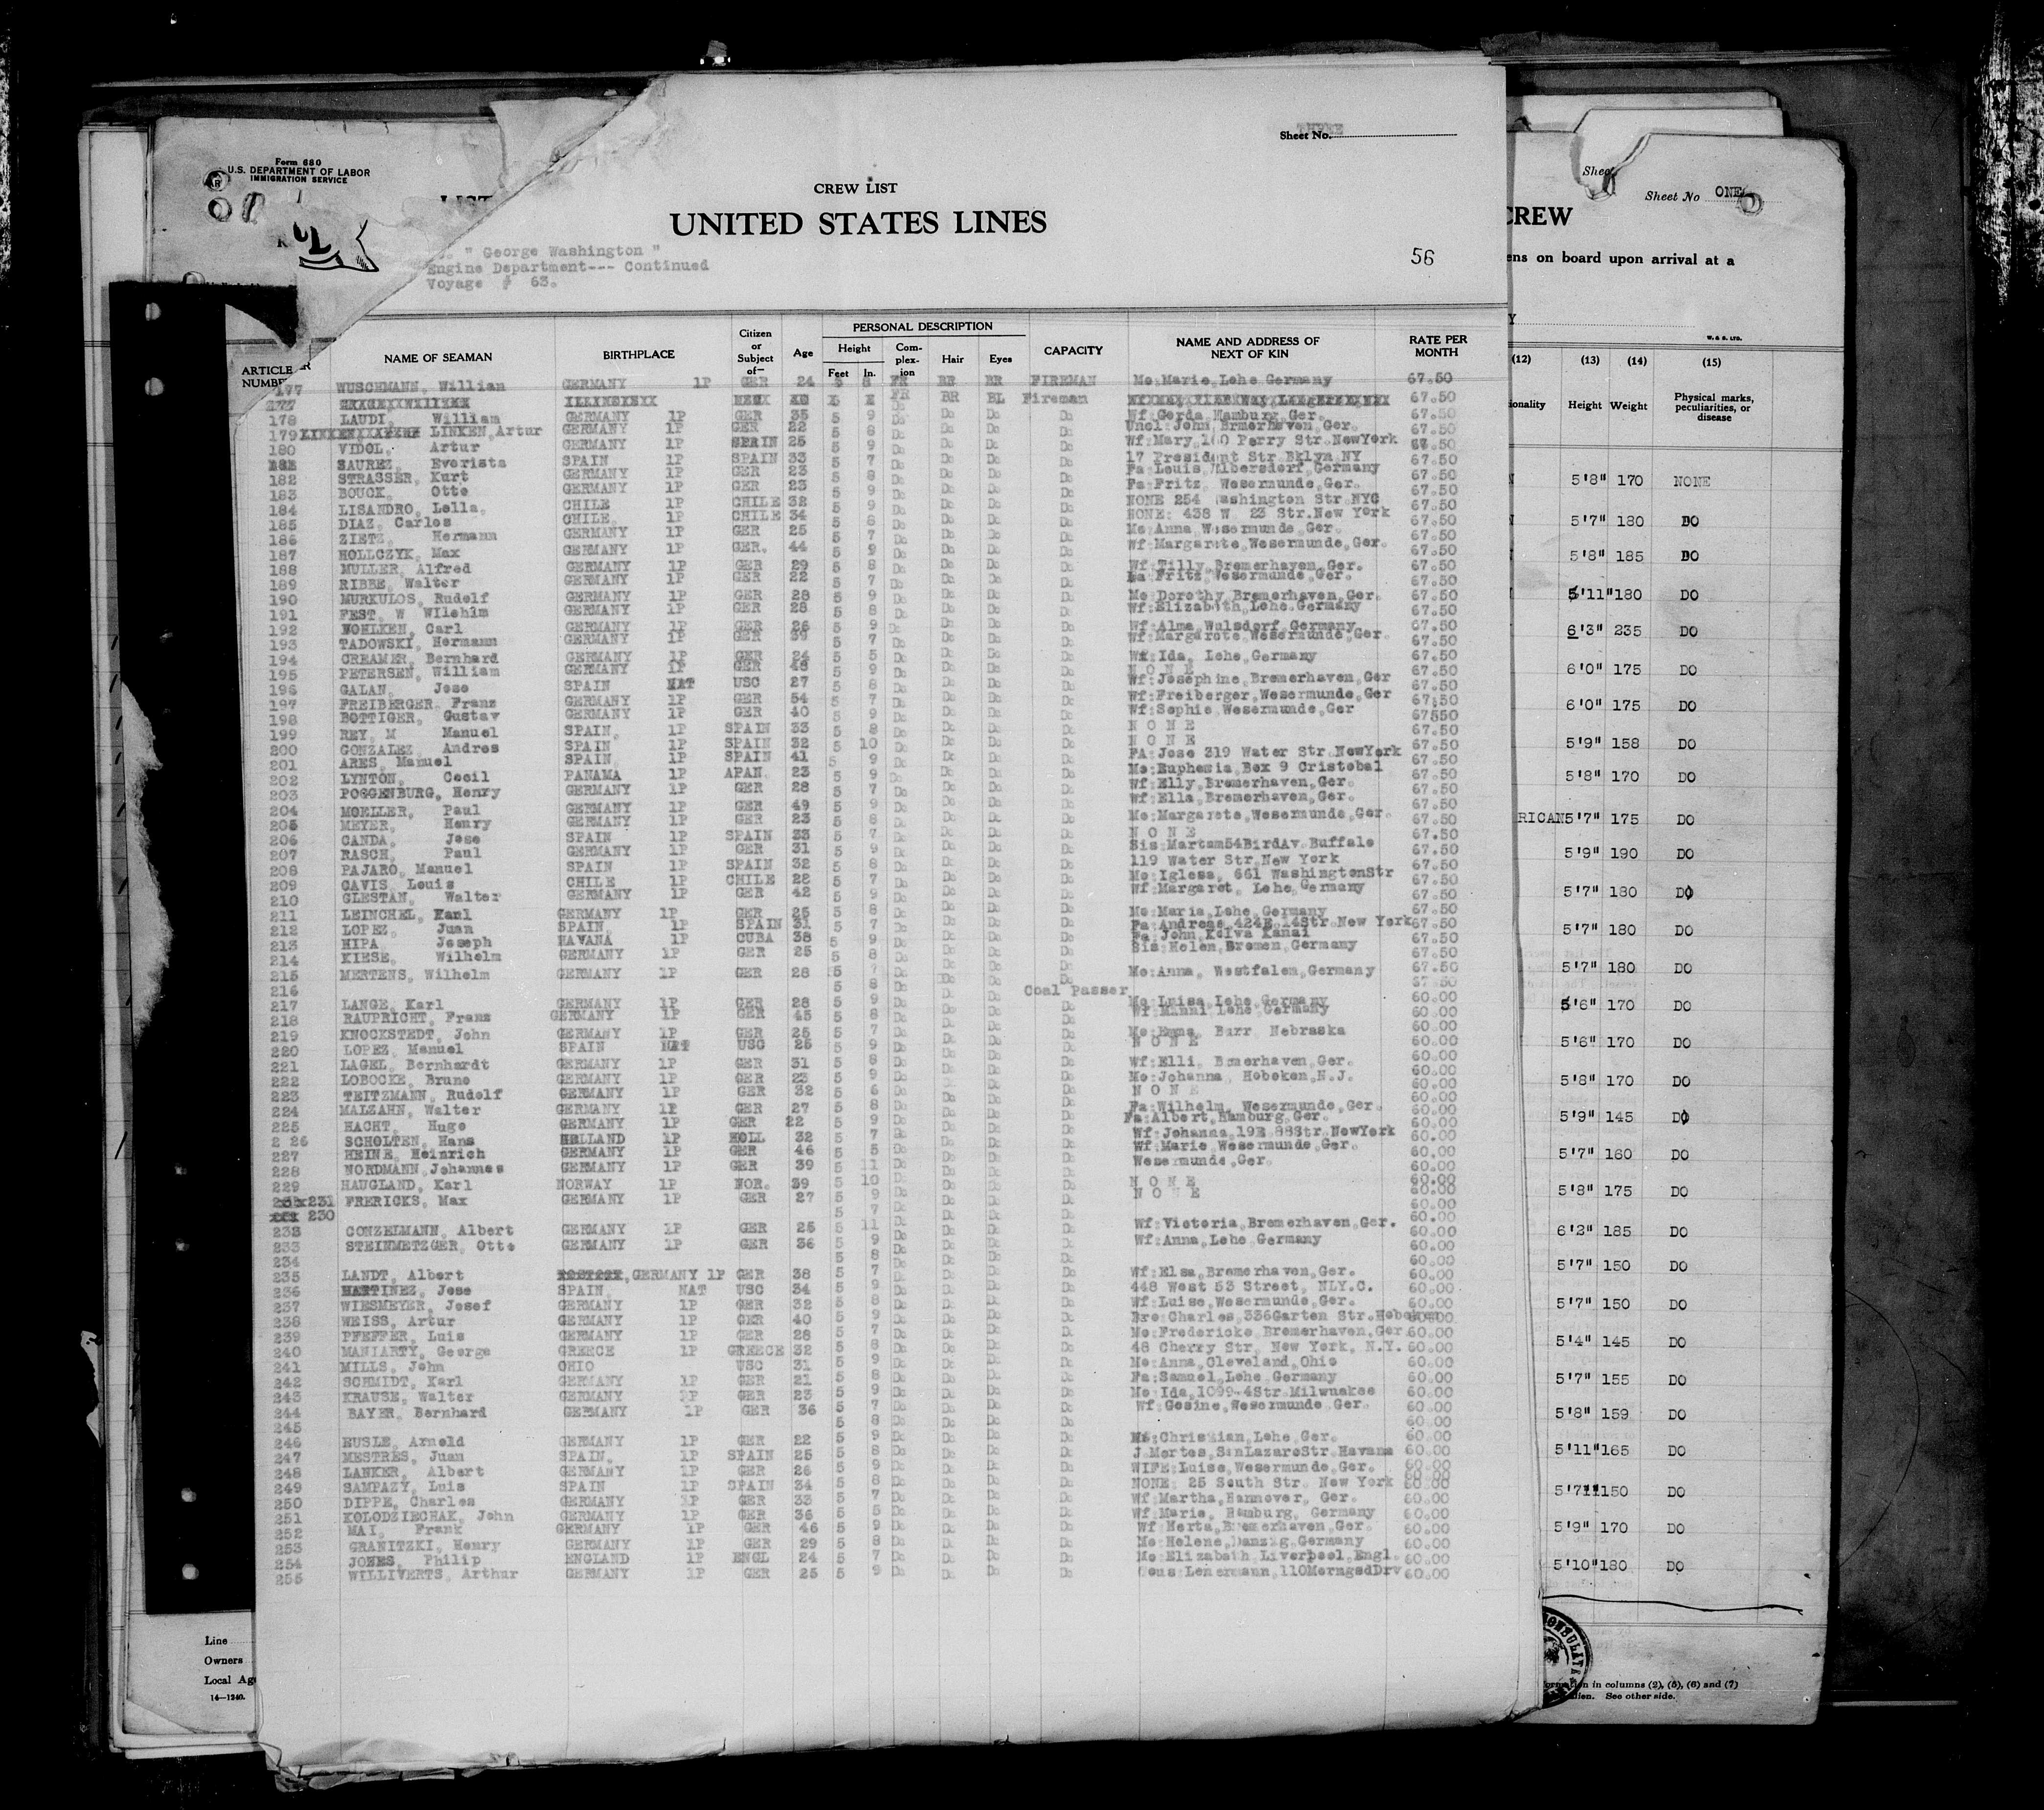 Sheet No. THREE
Form 680
U.S. DEPARTMENT OF LABOR
IMMIGRATION SERVICE
LIST
CREW LIST
UNITED STATES LINES
" George Washington "
Engine Department--- Continued
Voyage # 63.
56
ARTICLE NUMBER NAME OF SEAMAN BIRTHPLACE Citizen or Subject of— Age PERSONAL DESCRIPTION Height Feet In. Complexion Hair Eyes CAPACITY NAME AND ADDRESS OF NEXT OF KIN RATE PER MONTH
177 WUSCHMANN, Willian GERMANY 1P GER 24 5 8 FR BR BR FIREMAN Mo:Marie,Lehe Germany 67.50
FR BR BL Fireman 67.50
178 LAUDI, William GERMANY 1P GER 35 5 9 Do Do Do Do Wf:Gerda Hamburg Ger. 67.50
179 LINKEN,Artur GERMANY 1P GER 22 5 8 Do Do Do Do Uncl:John,Brmerhaven,Ger. 67.50
180 VIDOL, Artur GERMANY 1P 25 5 9 Do Do Do Do Wf:Mary,160 Perry Str.NewYork 67.50
SAUREZ, Evarista SPAIN 1P SPAIN 33 5 7 Do Do Do Do 17 President Str Bklyn NY 67.50
182 STRASSER, Kurt GERMANY 1P GER 23 5 8 Do Do Do Do Fa:Louis,Albersdorf,Germany 67.50
183 BOUCK, Otto GERMANY 1P GER 23 5 9 Do Do Do Do Fa:Fritz, Wesermunde,Ger. 67.50
184 LISANDRO, Lella, CHILE 1P CHILE 32 5 9 Do Do Do Do NONE 254 Washington Str NYC 67.50
185 DIAZ, Carlos CHILE, 1P CHILE 34 5 8 Do Do Do Do NONE: 438 W 23 Str.New York 67.50
186 ZIETZ, Hermann GERMANY 1P GER 25 5 7 Do Do Do Do Mo:Anna Wesermunde,Ger. 67.50
187 HOLLCZYK, Max GERMANY 1P GER. 44 5 9 Do Do Do Do Wf:Margarete,Wesermunde,Ger. 67.50
188 MULLER, Alfred GERMANY 1P GER 29 5 8 Do Do Do Do Wf:Tilly,Bremerhaven,Ger. 67.50
189 RIBBE, Walter GERMANY 1P GER 22 5 7 Do Do Do Do Fa:Fritz,Wesermunde,Ger. 67.50
190 MURKULOS, Rudolf GERMANY 1P GER 28 5 9 Do Do Do Do Mo:Dorothy,Bremerhaven,Ger. 67.50
191 FEST, W WIlehlm GERMANY 1P GER 28 5 8 Do Do Do Do Wf:Elizabeth,Lehe,Germany 67.50
192 NOHLKEN, Carl GERMANY 1P GER 26 5 9 Do Do Do Do Wf:Alma, Wulsdorf,Germany 67.50
193 TADOWSKI, Hermann GERMANY 1P GER 39 5 7 Do Do Do Do Wf:Margarete,Wesermunde,Ger. 67.50
194 CREAMER, Bernhard GERMANY 1P GER 24 5 5 Do Do Do Do Wf:Ida, Lehe,Germany 67.50
195 PETERSEN, William GERMANY 1P GER 48 5 9 Do Do Do Do N O N E 67.50
196 GALAN, Jose SPAIN NAT USC 27 5 8 Do Do Do Do Wf:Josephine,Bremerhaven,Ger 67.50
197 FREIBERGER, Franz GERMANY 1P GER 54 5 7 Do Do Do Do Wf:Freiberger,Wesermunde,Ger 67.50
198 BOTTIGER, Gustav GERMANY 1P GER 40 5 9 Do Do Do Do Wf:Sophie Wesermunde,Ger 67550
199 REY, M Manuel SPAIN, 1P SPAIN 33 5 8 Do Do Do Do N O N E 67.50
200 GONZALEZ, Andres SPAIN 1P SPAIN 32 5 10 Do Do Do Do N O N E 67.50
201 ARES, Manuel SPAIN, 1P SPAIN 41 5 9 Do Do Do Do FA:Jose 319 Water Str NewYork 67.50
202 LYNTON, Cecil PANAMA 1P APAN. 23 5 9 Do Do Do Do Mo:Euphemia Box 9 Cristobal 67.50
203 POGGENBURG, Henry GERMANY 1P GER 28 5 7 Do Do Do Do Wf:Elly,Bremerhaven,Ger. 67.50
204 MOELLER, Paul GERMANY 1P GER 49 5 9 Do Do Do Do Wf:Ella,Bremerhaven,Ger. 67.50
205 MEYER, Henry GERMANY 1P GER 23 5 8 Do Do Do Do Mo:Margarete,Wesermunde,Ger. 67.50
206 CANDA, Jose SPAIN 1P SPAIN 33 5 7 Do Do Do Do N O N E 67.50
207 RASCH, Paul GERMANY 1P GER 31 5 9 Do Do Do Do Sis:Martam54BirdAv.Buffalo 67.50
208 PAJARO, Manuel SPAIN 1P SPAIN 32 5 8 Do Do Do Do 119 Water Str,New York 67.50
209 CAVIS, Louis CHILE 1P CHILE 28 5 7 Do Do Do Do Mo:Iglesa, 661 WashingtonStr 67.50
210 GLESTAN, Walter GERMANY 1P GER 42 5 9 Do Do Do Do Wf:Margaret, Lehe,Germany 67.50
211 LEINCHEL, Karl GERMANY 1P GER 25 5 8 Do Do Do Do Mo:Maria,Lehe,Germany 67.50
212 LOPEZ, Juan SPAIN, 1P SPAIN 31 5 7 Do Do Do Do Fa:Andreas,424E.14Str.New York 67.50
213 HIPA, Joseph HAVANA 1P CUBA 38 5 9 Do Do Do Do Fa:John,Keiva Kanai 67.50
214 KIESE, Wilhelm GERMANY 1P GER 25 5 8 Do Do Do Do Sis:Helen,Bremen,Germany 67.50
215 MERTENS, Wilhelm GERMANY 1P GER 28 5 7 Do Do Do Do Mo:Anna, Westfalen,Germany 67.50
216 5 8 Do Do Do Coal Passer 67.50
217 LANGE, Karl GERMANY 1P GER 28 5 9 Do Do Do Do Mo:Luisa,Lehe,Germany 60.00
218 RAUPRICHT, Franz GERMANY 1P GER 45 5 8 Do Do Do Do Wf:Manni Lehe Germany 60.00
219 KNOCKSTEDT, John GERMANY 1P GER 25 5 7 Do Do Do Do Mo:Emma, Barr, Nebraska 60.00
220 LOPEZ, Manuel SPAIN NAT USC 25 5 9 Do Do Do Do N O N E 60.00
221 LAGEL, Bernhardt GERMANY 1P GER 31 5 8 Do Do Do Do Wf:Elli, Bmerhaven,Ger. 60.00
222 LOBOCKE, Bruno GERMANY 1P GER 23 5 9 Do Do Do Do Mo:Johanna, Hoboken,N.J. 60.00
223 TEITZMANN, Rudolf GERMANY 1P GER 32 5 6 Do Do Do Do N O N E 60.00
224 MALZAHN, Walter GERMANY 1P GER 27 5 8 Do Do Do Do Fa:Wilhelm, Wesermunde,Ger. 60.00
225 HACHT, Hugo GERMANY 1P GER 22 5 9 Do Do Do Do Fa:Albert,Hamburg,Ger. 60.00
2 26 SCHOLTEN, Hans HOLLAND 1P HOLL 32 5 7 Do Do Do Do Wf:Johanna,19E.88Str.NewYork 60.00
227 HEINE, Heinrich GERMANY 1P GER 46 5 5 Do Do Do Do Wf:Marie Wesermunde,Ger. 60.00
228 NORDMANN,Johannes GERMANY 1P GER 39 5 11 Do Do Do Do Wesermunde,Ger. 60.00
229 HAUGLAND, Karl NORWAY 1P NOR. 39 5 10 Do Do Do Do N O N E 60.00
231 FRERICKS, Max GERMANY 1P GER 27 5 9 Do Do Do Do N O N E 60.00
230 5 7 Do Do Do Do 60.00
232 CONZELMANN, Albert GERMANY 1P GER 25 5 11 Do Do Do Do Wf:Victoria,Bremerhaven,Ger. 60.00
233 STEINMETZGER, Otto GERMANY 1P GER 36 5 9 Do Do Do Do Wf:Anna,Lehe Germany 60.00
234 5 8 Do Do Do Do 60.00
235 LANDT, Albert GERMANY 1P GER 38 5 7 Do Do Do Do Wf:Elsa,Bremerhaven,Ger. 60.00
236 MARTINEZ, Jose SPAIN, NAT USC 34 5 9 Do Do Do Do 448 West 53 Street, NLY.C. 60.00
237 WIESMEYER, Josef GERMANY 1P GER 32 5 8 Do Do Do Do Wf:Luise,Wesermunde,Ger. 60.00
238 WEISS, Artur GERMANY 1P GER 40 5 9 Do Do Do Do Bro:Charles,336Garten Str.Hoboken 60.00
239 PFEFFER, Luis GERMANY 1P GER 28 5 7 Do Do Do Do Mo:Fredericke,Bremerhaven,Ger. 60.00
240 MANIARTY, George GREECE 1P GREECE 32 5 8 Do Do Do Do 48 Cherry Str, New York, N.Y. 60.00
241 MILLS, John OHIO USC 31 5 9 Do Do Do Do Mo:Anna,Cleveland,Ohio 60.00
242 SCHMIDT, Karl GERMANY 1P GER 21 5 8 Do Do Do Do Fa:Samuel,Lehe Germany 60.00
243 KRAUSE, Walter GERMANY 1P GER 23 5 9 Do Do Do Do Mo:Ida,1099-4Str Milwuakee 60.00
244 BAYER, Bernhard GERMANY 1P GER 36 5 7 Do Do Do Do Wf:Gesine,Wesermunde Ger. 60.00
245 5 8 Do Do Do Do 60.00
246 RUSLE, Arnold GERMANY 1P GER 22 5 9 Do Do Do Do Christian,Lehe,Ger. 60.00
247 MESTRES, Juan SPAIN, 1P SPAIN 25 5 8 Do Do Do Do J.Mortes,SanLazaroStr,Havana 60.00
248 LANKER, Albert GERMANY 1P GER 26 5 9 Do Do Do Do WIFE:Luise,Wesermunde,Ger. 60.00
249 SAMPAZY, Luis SPAIN 1P SPAIN 34 5 8 Do Do Do Do NONE: 25 South Str. New York 60.00
250 DIPPE, Charles GERMANY 1P GER 33 5 7 Do Do Do Do Wf:Martha,Hannover, Ger. 60.00
251 KOLODZIECHAK, John GERMANY 1P GER 36 5 5 Do Do Do Do Wf:Marie, Hamburg, Germany 60.00
252 MAI, Frank GERMANY 1P GER 46 5 9 Do Do Do Do Wf:Herta,Bremerhaven,Ger. 60.00
253 GRANITZKI, Henry GERMANY 1P GER 29 5 8 Do Do Do Do Mo:Helene,Danzig,Germany 60.00
254 JONES, Philip ENGLAND 1P ENGL 24 5 7 Do Do Do Do Mo:Elizabath,Liverpool,Engl. 60.00
255 WILLIVERTS, Arthur GERMANY 1P GER 25 5 9 Do Do Do Do Cous:Lenermann,110MorngsdDrv 60.00
Line
Owners
Local Ag
14—1240.
Shee
Sheet No ONE
CREW
ens on board upon arrival at a
Y
W. & S. LTD.
(12) (13) (14) (15)
ionality Height Weight Physical marks, peculiarities, or disease
5'8" 170 NONE
5'7" 180 DO
5'8" 185 DO
5'11" 180 DO
6'3" 235 DO
6'0" 175 DO
6'0" 175 DO
5'9" 158 DO
5'8" 170 DO
RICAN 5'7" 175 DO
5'9" 190 DO
5'7" 180 DO
5'7" 180 DO
5'7" 180 DO
5'6" 170 DO
5'6" 170 DO
5'8" 170 DO
5'9" 145 DO
5'7" 160 DO
5'8" 175 DO
6'2" 185 DO
5'7" 150 DO
5'7" 150 DO
5'4" 145 DO
5'7" 155 DO
5'8" 159 DO
5'11" 165 DO
5'7" 150 DO
5'9" 170 DO
5'10" 180 DO
formation in columns (2), (5), (6) and (7)
alien. See other side.